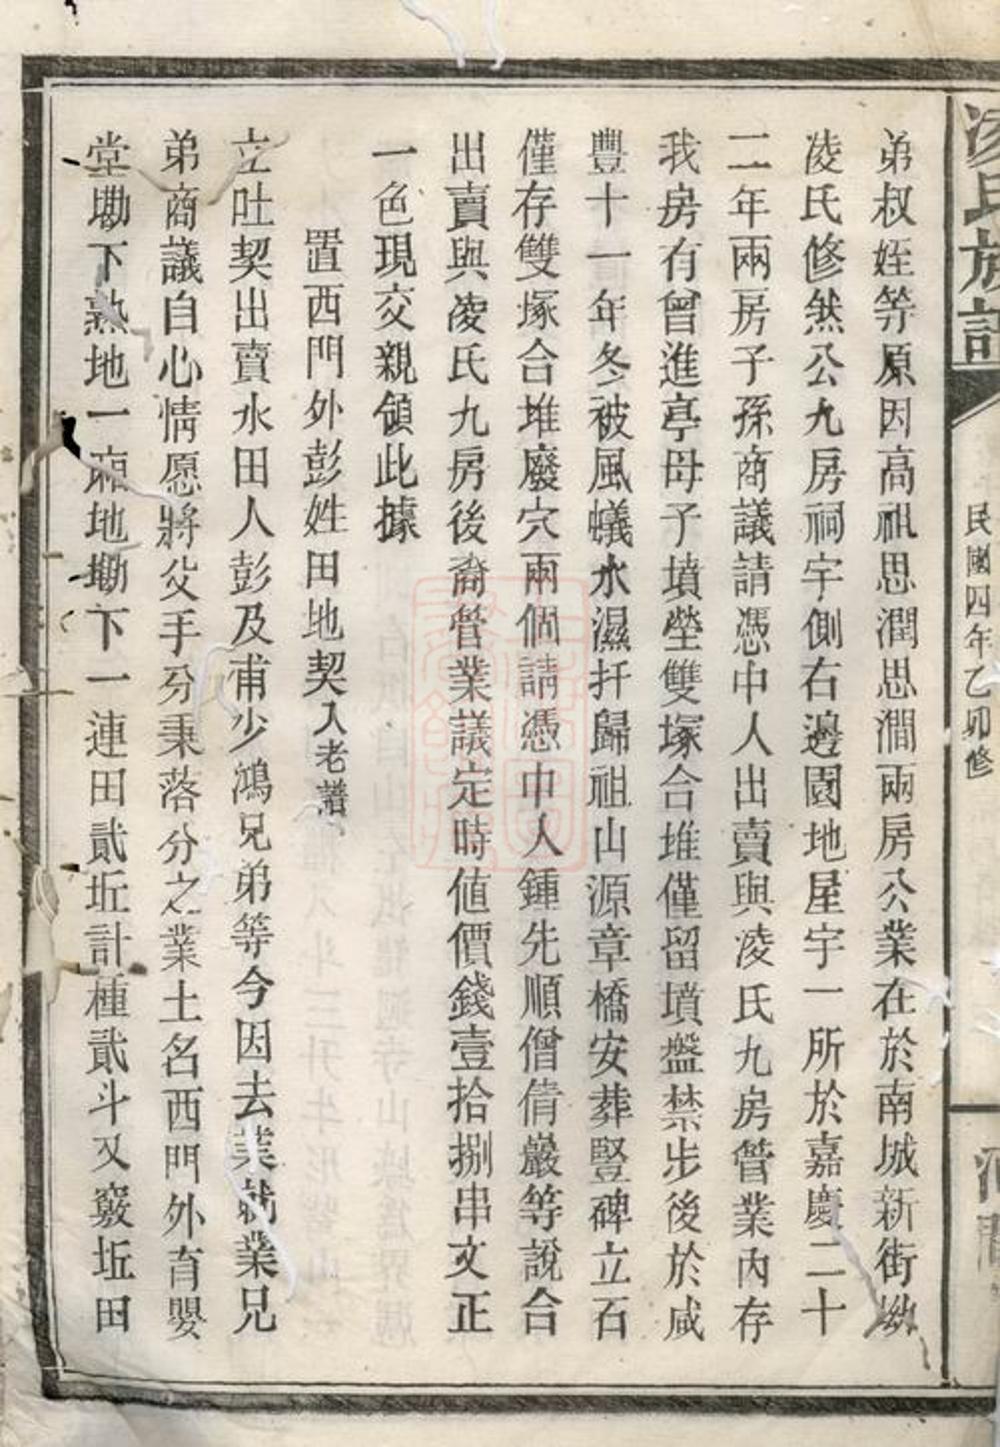 凌氏族譜
民國四年乙卯修
弟叔姪等原因高祖思潤思澗兩房公業在於南城新街坳
凌氏修然公九房祠宇側右邊園地屋宇一所於嘉慶二十
二年兩房子孫商議請憑中人出賣與凌氏九房管業內存
我房有曾進亭母子墳塋雙塚合堆僅留墳盤禁步後於咸
豐十一年冬被風蟻水濕扦歸祖山源章橋安葬豎碑立石
僅存雙塚合堆廢穴兩個請憑中人鍾先順僧倩巖等說合
出賣與凌氏九房後裔管業議定時値價錢壹拾捌串文正
一色現交親領此據
置西門外彭姓田地契入老譜
立吐契出賣水田人彭及甫少鴻兄弟等今因去業就業兄
弟商議自心情愿將父手分秉落分之業土名西門外育嬰
堂墈下熟地一廂地墈下一連田貳坵計種貳斗又竅坵田